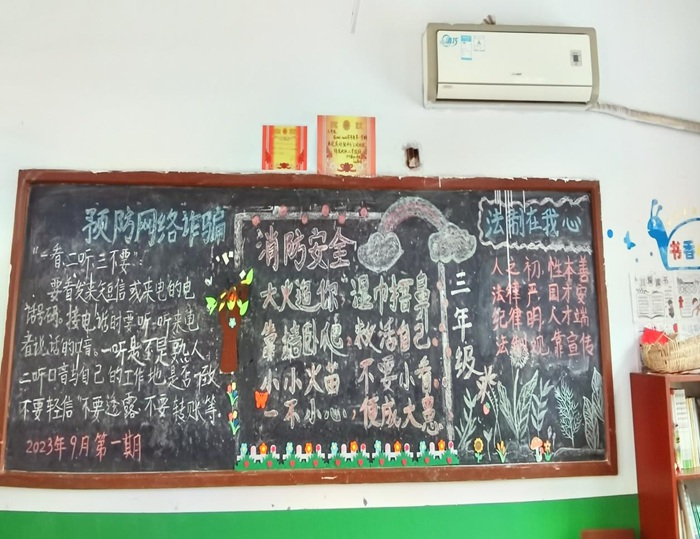 预防网络诈骗
"一看二听三不要":
要看发来短信或来电的电
话号码。接电话时要听一听来电
者说话的口音。一听是不是熟人,
二听口音与自己的工作地是否一致
不要轻信"不要透露 不要转账等.
2023年9月第一期
消防安全
大火追你 湿巾捂鼻
靠墙卧爬 救活自己
小小火苗 不要小看
一不小心, 便成大患
三年级
法制在我心
人之初 性本善
法律严 国才安
犯律明 人才端
法制观 靠宣传
书香